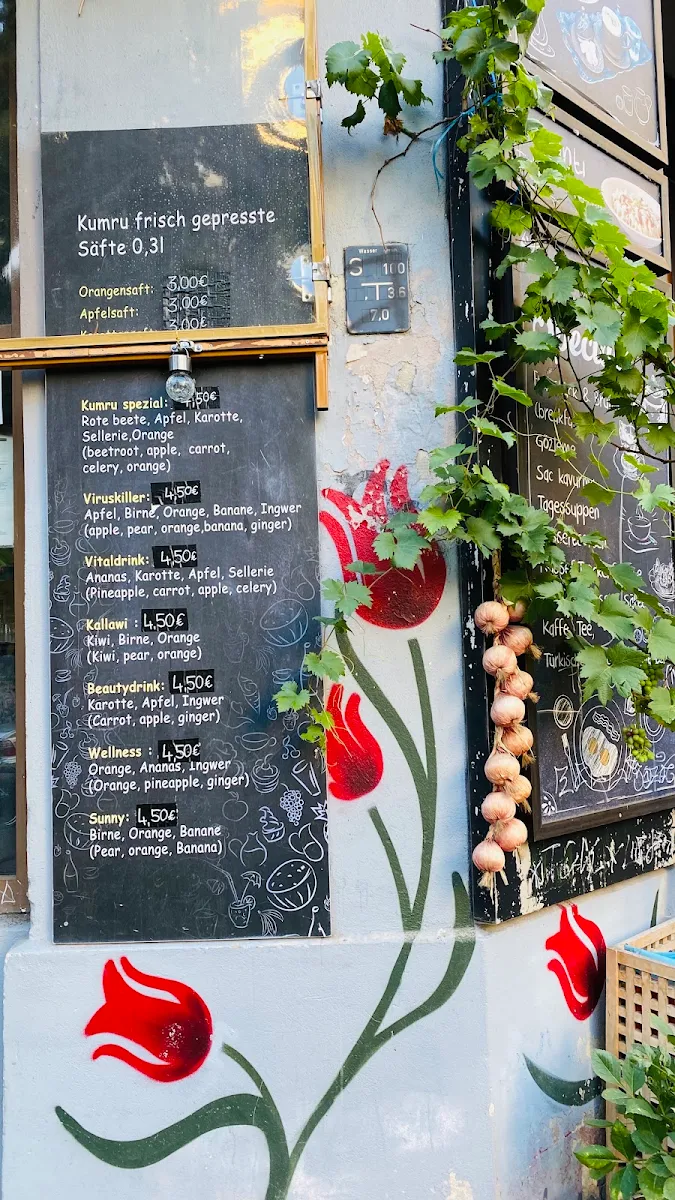 Kumru frisch gepresste
Säfte 0,3l
Orangensaft: 3,00€
Apfelsaft: 3,00€
3,00€
Kumru spezial: 4,50€
Rote beete, Apfel, Karotte,
Sellerie,Orange
(beetroot, apple, carrot,
celery, orange)
Viruskiller: 4,50€
Apfel, Birne, Orange, Banane, Ingwer
(apple, pear, orange,banana, ginger)
Vitaldrink: 4,50€
Ananas, Karotte, Apfel, Sellerie
(Pineapple, carrot, apple, celery)
Kallawi : 4,50€
Kiwi, Birne, Orange
(Kiwi, pear, orange)
Beautydrink: 4,50€
Karotte, Apfel, Ingwer
(Carrot, apple, ginger)
Wellness : 4,50€
Orange, Ananas, Ingwer
(Orange, pineapple, ginger)
Sunny: 4,50€
Birne, Orange, Banane
(Pear, orange, Banana)
Wasser
S 100
T 3,6
7,0
(breakfast
Gözleme
Saç kavurma
Tagessuppen
Kaffe, Tee,